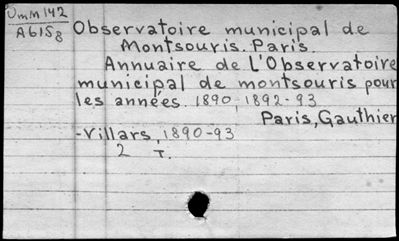 UmM142
A615g
Observatoire municipal de
Montsouris. Paris.
Annuaire de L'Observatoire
municipal de montsouris pour
les années. 1890, 1892-93
Paris, Gauthier
-Villars, 1890-93
2 T.